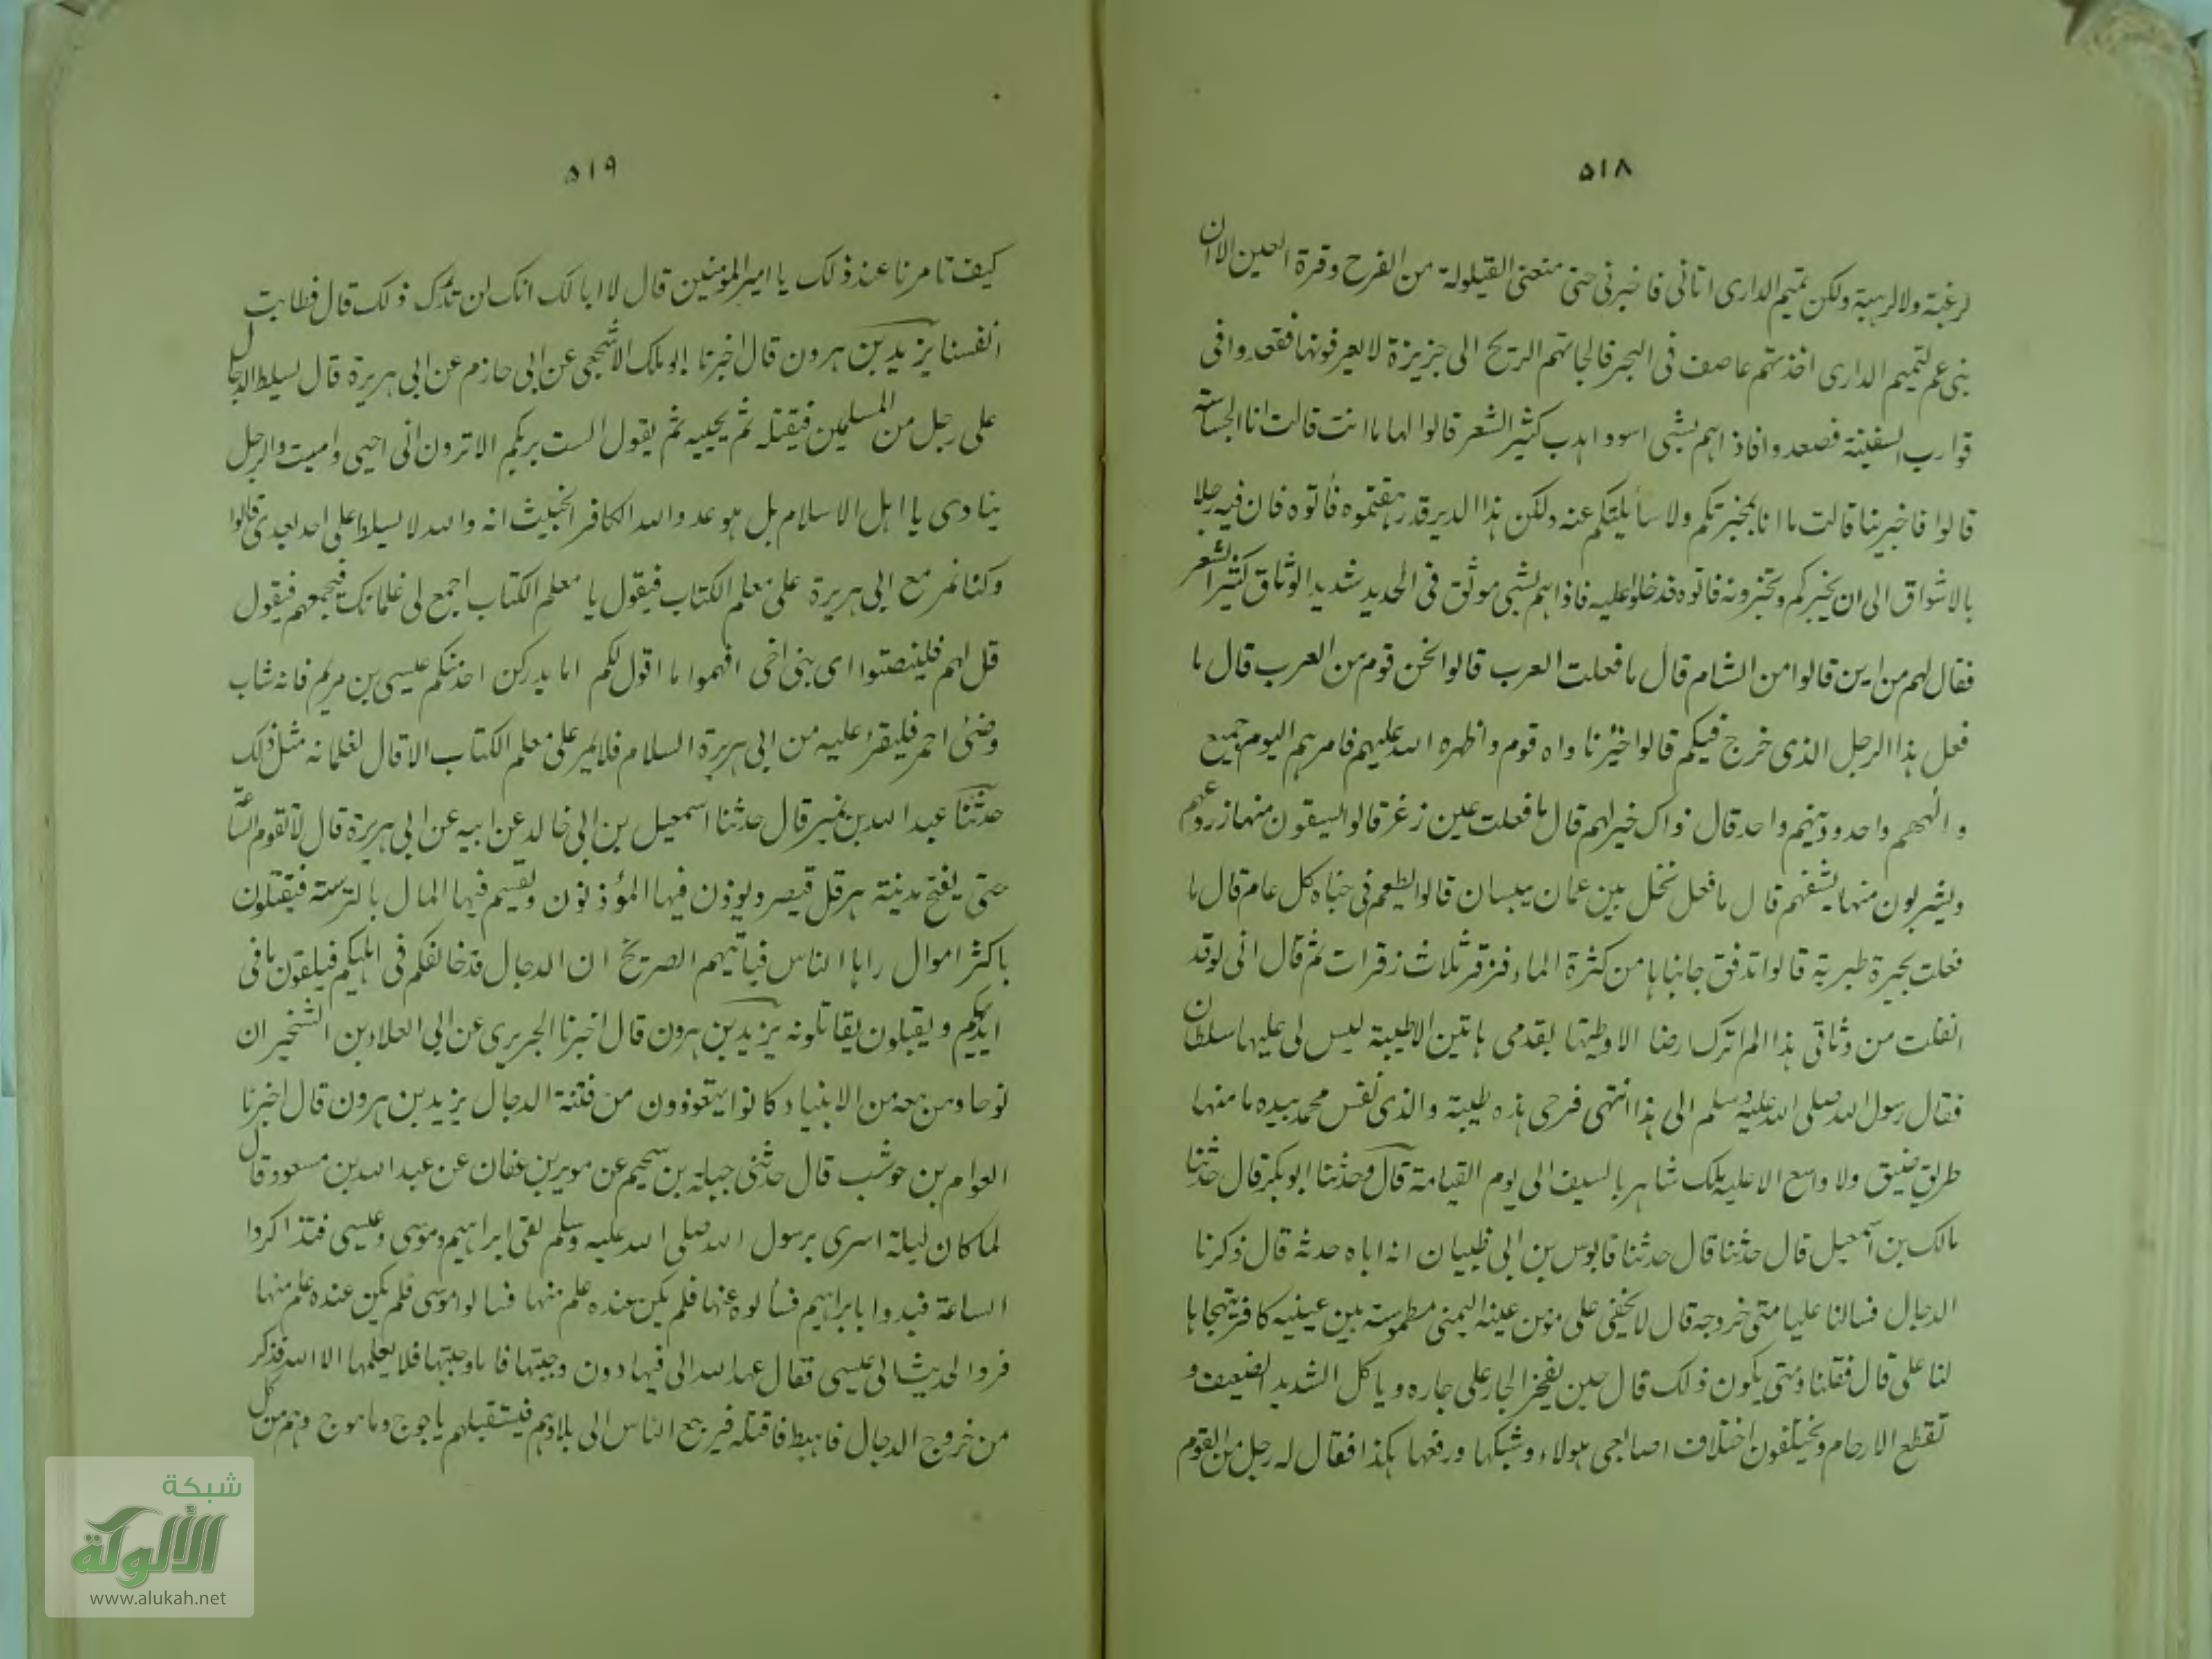 ٥١٨
لرغبة ولا لرهبة ولكن تميم الدارى اتانى فاخبرنى حتى منعنى القيلولة من الفرح وقرة العين الا ان
بنى عم لتميم الدارى اخذتهم عاصف فى البحر فالجاتهم الريح الى جزيرة لا يعرفونها فقعدوا فى
قوارب السفينة فصعدوا فاذا هم بشى اسود اهدب كثير الشعر قالوا لها ما انت قالت انا الجساسة
قالوا فاخبرينا قالت ما انا بمخبرتكم ولا سأيلتكم عنه ولكن هذا الدير قد رهقتموه فأتوه فان فيه رجلا
بالاشواق الى ان يخبركم وتخبرونه فاتوه فدخلوا عليه فاذا هم بشى موثق فى الحديد شديد الوثاق كثير الشعر
فقال لهم من اين قالوا من الشام قال ما فعلت العرب قالوا نحن قوم من العرب قال ما
فعل هذا الرجل الذى خرج فيكم قالوا خيرنا واه قوم واظهره الله عليهم فامرهم اليوم جميع
والههم واحد ودينهم واحد قال ذاك خير لهم قال ما فعلت عين زغر قالوا يسقون منها زروعهم
ويشربون منها بشفهم قال ما فعل نخل بين عمان بيسان قالوا يطعم فى جناه كل عام قال ما
فعلت بحيرة طبرية قالوا تدفق جانباها من كثرة الماء فزفر ثلاث زفرات ثم قال انى لو قد
انفلت من وثاقى هذا لم اترك ارضا الا وطيتها بقدمى هاتين الا طيبة ليس لى عليها سلطان
فقال رسول الله صلى الله عليه وسلم الى هذا انتهى فرحى هذه طيبة والذى نفس محمد بيده ما منها
طريق ضيق ولا واسع الا عليه ملك شاهر بالسيف الى يوم القيامة قال وحدثنا ابو بكر قال حدثنا
مالك بن اسمعيل قال حدثنا قال حدثنا قابوس بن ابى ظبيان انه اباه حدثه قال ذكرنا
الدجال فسالنا عليا متى خروجه قال لا يخفى على مؤمن عينه اليمنى مطموسة بين عينيه كافر يتهجاها
لنا على قال فقلنا ومتى يكون ذلك قال حين يفخر الجار على جاره وياكل الشديد الضعيف و
تقطع الارحام ويختلفون اختلاف اصابعى هولاء وشبكها ورفعها هكذا فقال له رجل من القوم
٥١٩
كيف تامرنا عند ذلك يا امير المؤمنين قال لا ابا لك انك لن تدرك ذلك قال فطابت
انفسنا يزيد بن هرون قال اخبرنا ابو ملك الاشجعى عن ابى حازم عن ابى هريرة قال يسلط الدجال
على رجل من المسلمين فيقتله ثم يحييه ثم يقول الست بربكم الا ترون انى احيى واميت والرجل
ينادى يا اهل الاسلام بل هو عدو الله الكافر الخبيث انه والله لا يسلط على احد بعدى قالوا
وكنا نمر مع ابى هريرة على معلم الكتاب فيقول يا معلم الكتاب اجمع لى غلمانك فيجمعهم فيقول
قل لهم فلينصتوا اى بنى اخى افهموا ما اقول لكم اما يدركن احدكم عيسى بن مريم فانه شاب
وضئ احمر فليقرئ عليه من ابى هريرة السلام فلا يمر على معلم الكتاب الا قال لغلمانه مثل ذلك
حدثنا عبد الله بن نمير قال حدثنا اسمعيل بن ابى خالد عن ابيه عن ابى هريرة قال لا تقوم الساعة
حتى يفتح مدينة هرقل قيصر ويوذن فيها المؤذنون ويقسم فيها المال بالترسة فيقبلون
باكثر اموال راها الناس فياتيهم الصريخ ان الدجال قد خالفكم فى اهليكم فيلقون ما فى
ايديهم ويقبلون يقاتلونه يزيد بن هرون قال اخبرنا الجريرى عن ابى العلاء بن الشخير ان
نوحا ومن معه من الانبياء كانوا يتعوذون من فتنة الدجال يزيد بن هرون قال اخبرنا
العوام بن حوشب قال حدثنى جبلة بن سحيم عن موير بن عفان عن عبد الله بن مسعود قال
لما كان ليلة اسرى برسول الله صلى الله عليه وسلم لقى ابراهيم وموسى وعيسى فتذاكروا
الساعة فبدوا بابراهيم فسألوه عنها فلم يكن عنده علم منها فسالوا موسى فلم يكن عنده علم منها
فردوا الحديث الى عيسى فقال عهد الله الى فيها دون وجبتها فاما وجبتها فلا يعلمها الا الله فذكر
من خروج الدجال فاهبط فاقتله فيرجع الناس الى بلادهم فيستقبلهم ياجوج وماجوج وهم من كل
شبكة
الألوكة
www.alukah.net